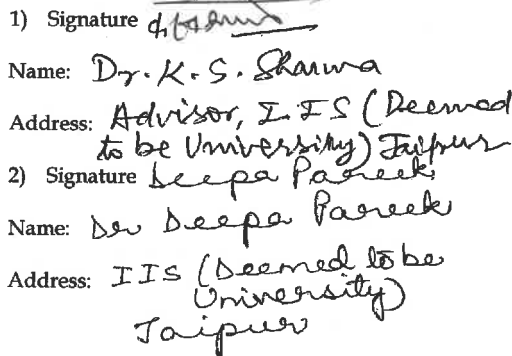 1) Signature
Name: Dr. K. S. Sharma
Address: Advisor, IIS (Deemed
to be University) Jaipur
2) Signature Deepa Pareek
Name: Dr Deepa Pareek
Address: IIS (Deemed to be
University)
Jaipur